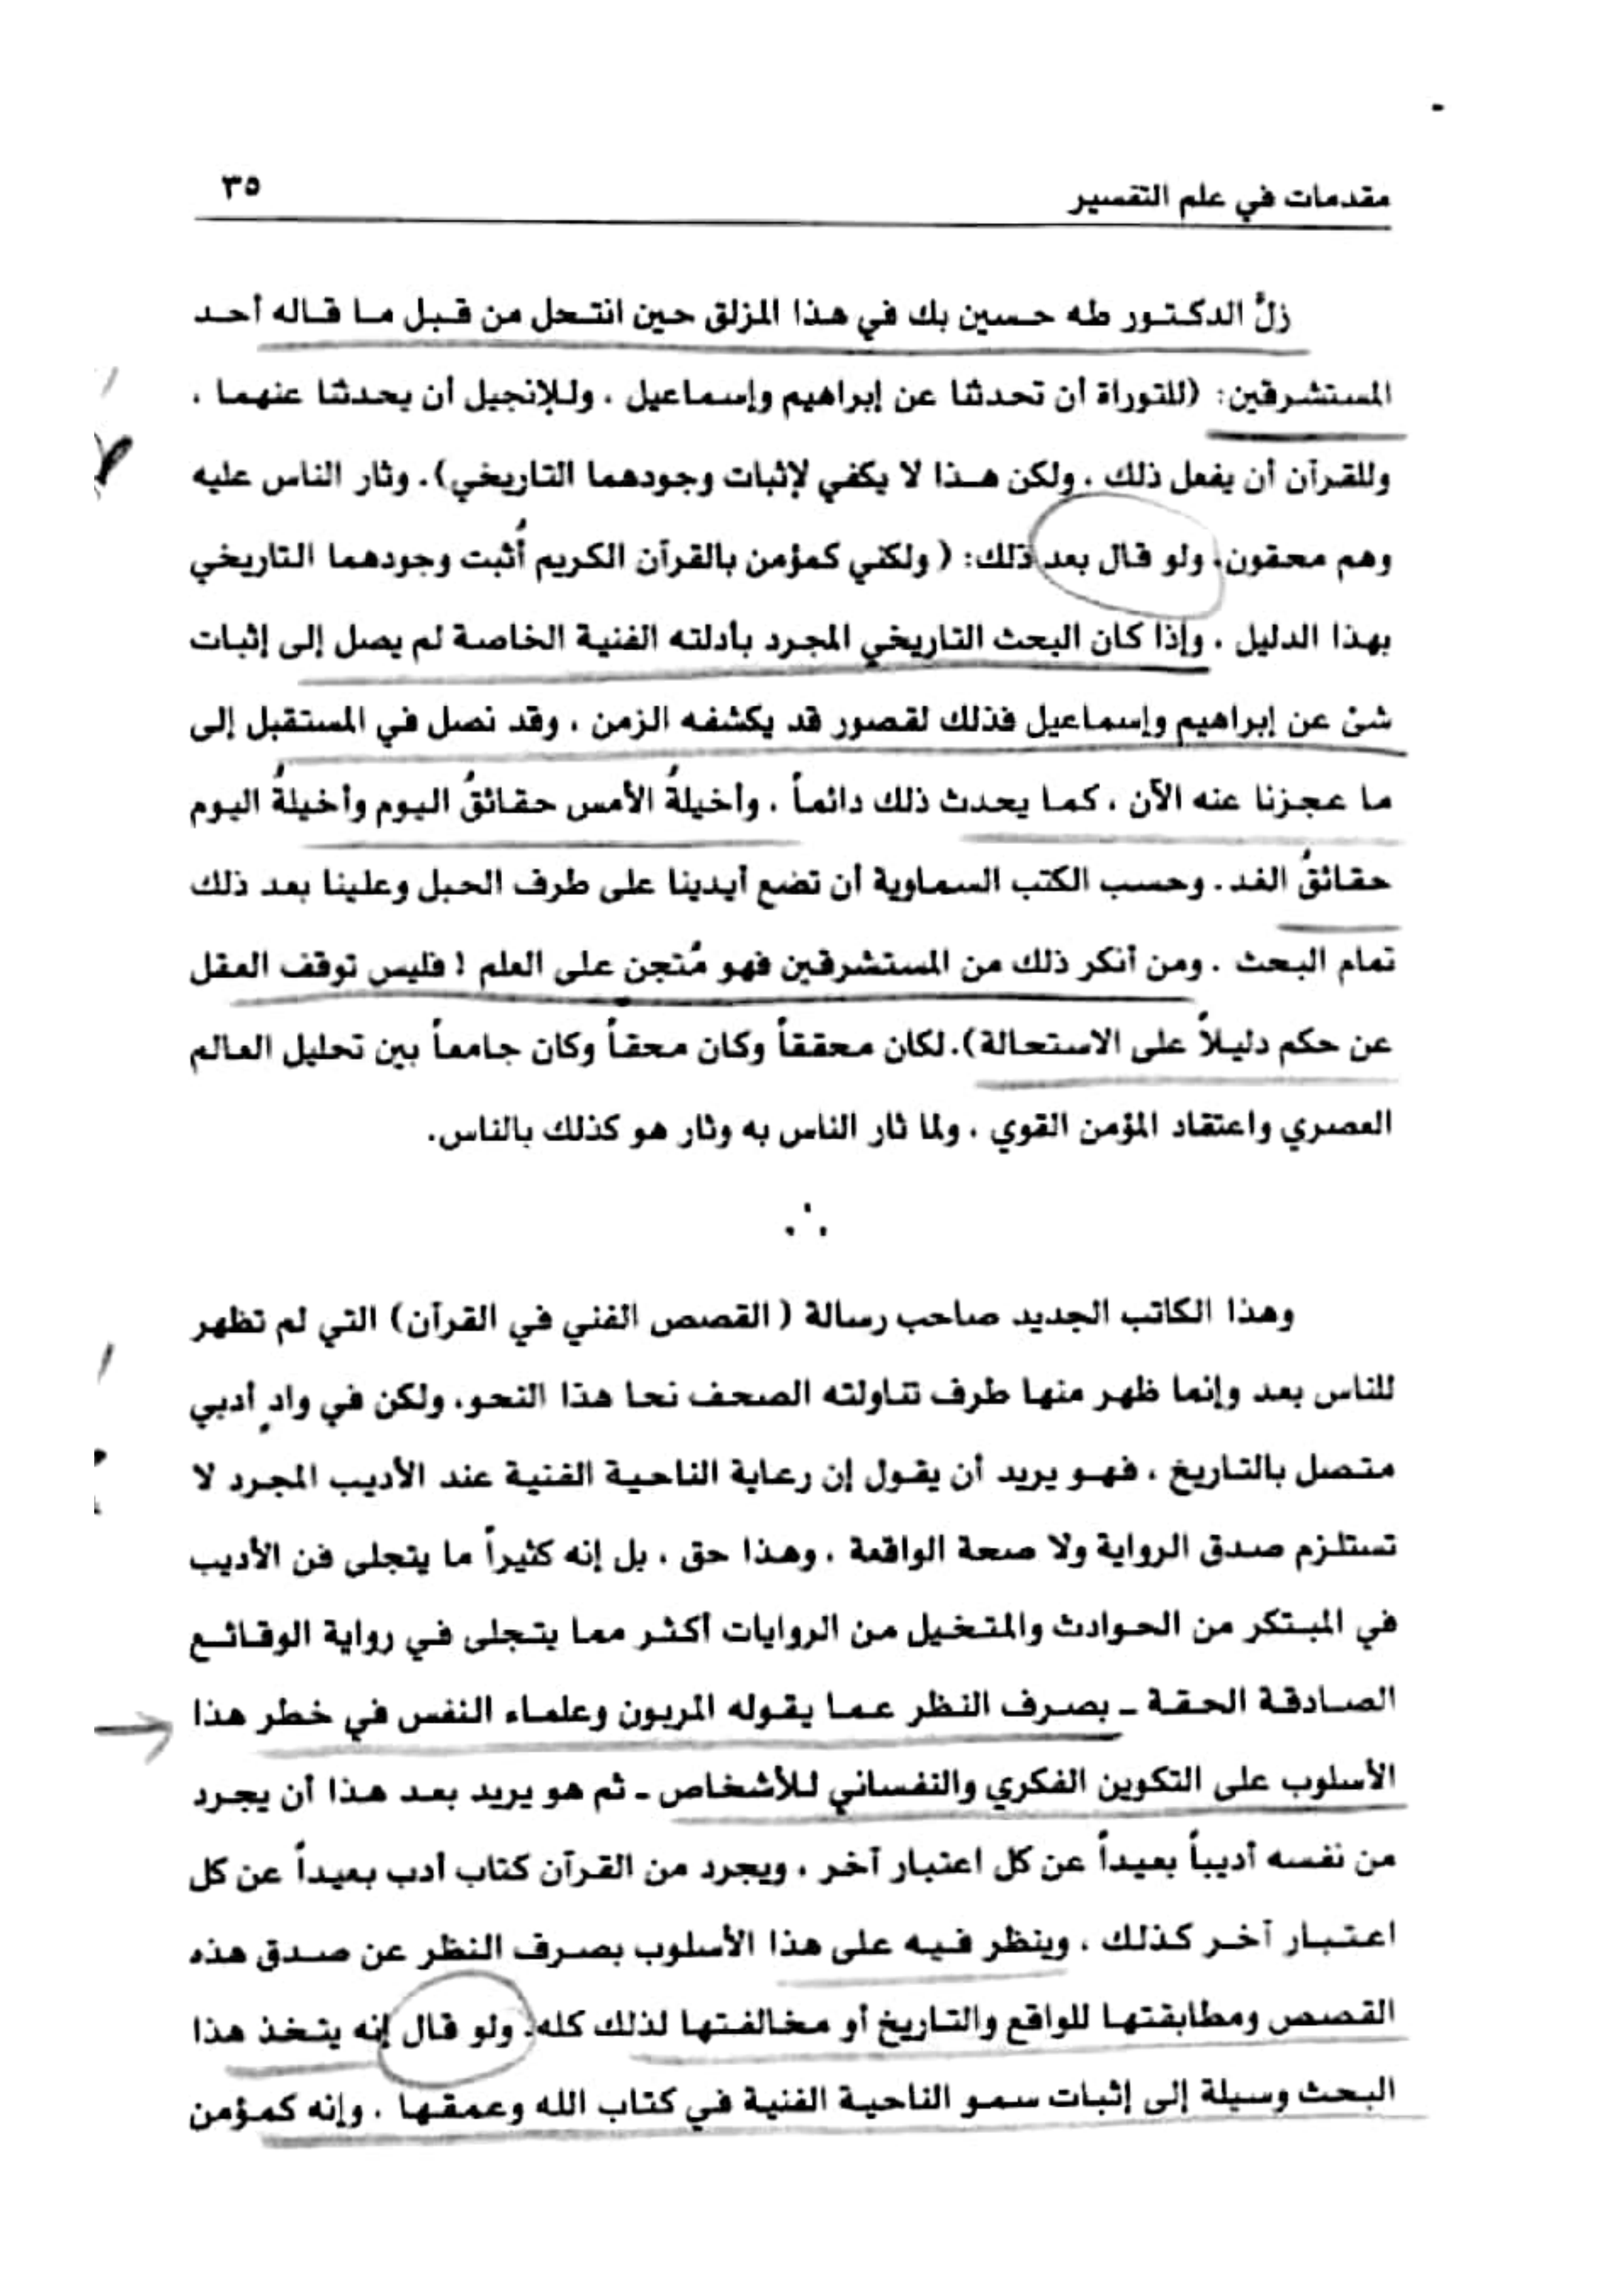 مقدمات في علم التفسير
٣٥
زلَّ الدكتور طه حسين بك في هذا المزلق حين انتحل من قبل ما قاله أحد
المستشرقين: (للتوراة أن تحدثنا عن إبراهيم وإسماعيل ، وللإنجيل أن يحدثنا عنهما ،
وللقرآن أن يفعل ذلك ، ولكن هذا لا يكفي لإثبات وجودهما التاريخي). وثار الناس عليه
وهم محقون. ولو قال بعد ذلك: ( ولكني كمؤمن بالقرآن الكريم أُثبت وجودهما التاريخي
بهذا الدليل ، وإذا كان البحث التاريخي المجرد بأدلته الفنية الخاصة لم يصل إلى إثبات
شئ عن إبراهيم وإسماعيل فذلك لقصور قد يكشفه الزمن ، وقد نصل في المستقبل إلى
ما عجزنا عنه الآن ، كما يحدث ذلك دائماً ، وأخيلةُ الأمس حقائقُ اليوم وأخيلةُ اليوم
حقائقُ الغد . وحسب الكتب السماوية أن تضع أيدينا على طرف الحبل وعلينا بعد ذلك
تمام البحث . ومن أنكر ذلك من المستشرقين فهو مُتجن على العلم ! فليس توقف العقل
عن حكم دليلاً على الاستحالة). لكان محققاً وكان محقاً وكان جامعاً بين تحليل العالم
العصري واعتقاد المؤمن القوي ، ولما ثار الناس به وثار هو كذلك بالناس.
∴
وهذا الكاتب الجديد صاحب رسالة ( القصص الفني في القرآن) التي لم تظهر
للناس بعد وإنما ظهر منها طرف تناولته الصحف نحا هذا النحو، ولكن في وادٍ أدبي
متصل بالتاريخ ، فهو يريد أن يقول إن رعاية الناحية الفنية عند الأديب المجرد لا
تستلزم صدق الرواية ولا صحة الواقعة ، وهذا حق ، بل إنه كثيراً ما يتجلى فن الأديب
في المبتكر من الحوادث والمتخيل من الروايات أكثر مما يتجلى في رواية الوقائع
الصادقة الحقة ـ بصرف النظر عما يقوله المربون وعلماء النفس في خطر هذا
الأسلوب على التكوين الفكري والنفساني للأشخاص ـ ثم هو يريد بعد هذا أن يجرد
من نفسه أديباً بعيداً عن كل اعتبار آخر ، ويجرد من القرآن كتاب أدب بعيداً عن كل
اعتبار آخر كذلك ، وينظر فيه على هذا الأسلوب بصرف النظر عن صدق هذه
القصص ومطابقتها للواقع والتاريخ أو مخالفتها لذلك كله. ولو قال إنه يتخذ هذا
البحث وسيلة إلى إثبات سمو الناحية الفنية في كتاب الله وعمقها ، وإنه كمؤمن